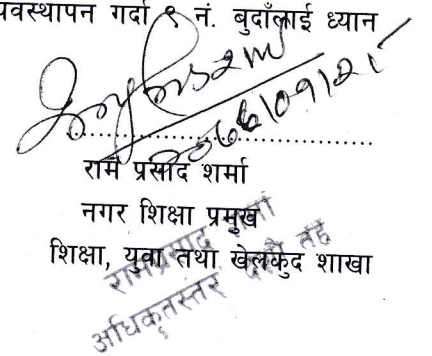 यवस्थापन गर्दा ९ नं. बुदाँलाई ध्यान
राम प्रसाद शर्मा
नगर शिक्षा प्रमुख
शिक्षा, युवा तथा खेलकुद शाखा
रामप्रसाद शर्मा
अधिकृतस्तर दशौं तह